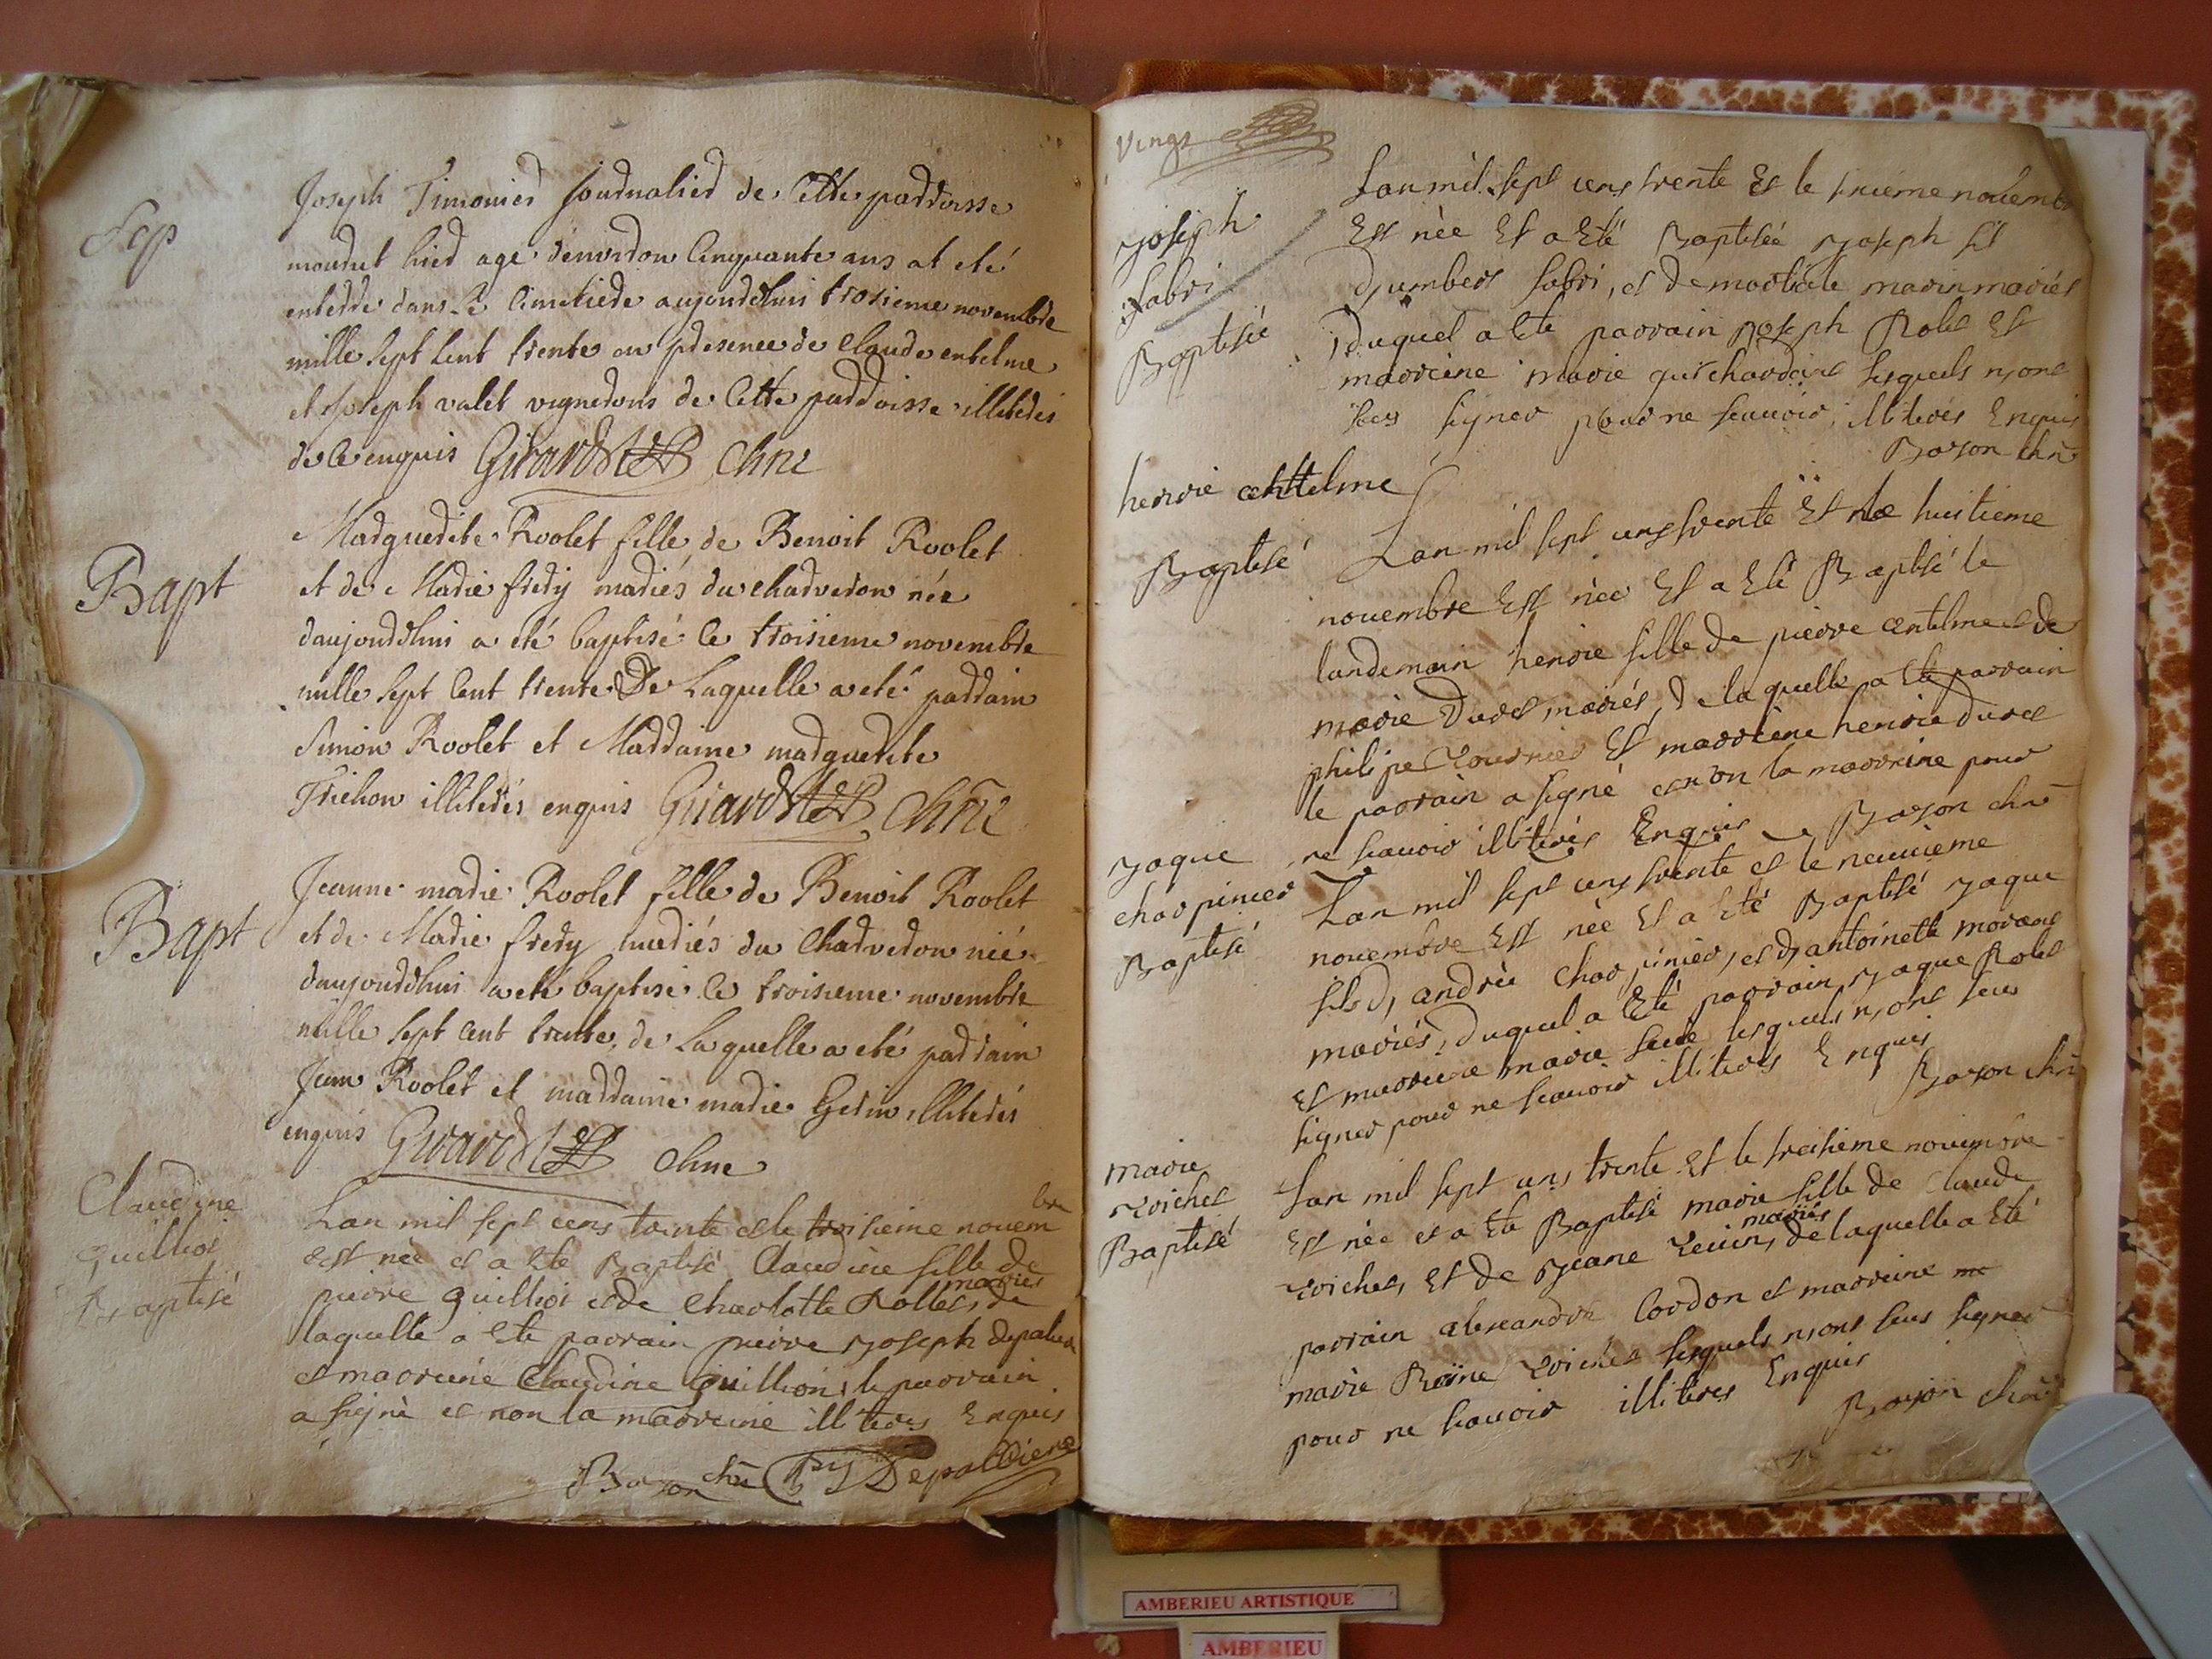 Sep
Joseph Timonier journalier de Cette parroisse
mourut hier agé denviron Cinquante ans at eté
enterré dans Le Cimetiere aujourdhuis troisieme novembre
mille Sept Cent trente en presence de Claude entelme
et Joseph valet vignerons de Cette parroisse illiterés
de Ce enquis Girard chne
Bapt
Marguerite Roolet fille de Benoit Roolet
et de Marie fredy mariés du charveron née
daujourdhui a eté baptisé Ce troisieme novembre
mille Sept Cent trente De Laquelle a eté parrain
Simon Roolet et Marraine marguerite
Trichon illiterés enquis Girard chne
Bapt
Jeanne marie Roolet fille de Benoit Roolet
et de Marie fredy mariés du Charveron née
daujourdhui a eté baptisé Ce troisieme novembre
mille Sept Cent trente, de Laquelle a eté parrain
Jean Roolet et marraine marie Gerin, illiterés
enquis Girard chne
Claudine
quillioz
Baptisé
Lan mil sept cens trente et le troisieme nouem
bre
est neè et a Ete Baptisé Claudine fille de
pierre quillioz et de Charlotte Rollet, de
mariés
laquelle a Ete parrain pierre Joseph
et marreine Claudine quillion, le parrain
a signè et non la marreine illiteres Enquis
Bozon chne
Vingt
Joseph
fabri
Baptisée
Lan mil sept cens trente Et le sixiéme nouembre
Est nèe Et a Eté Baptisée Joseph fils
D,umbert fabri, et de marie marin mariés
Duquel a Ete parrain Joseph Rolet Et
marreine marie lesquels n,ont
sceu signer pour ne scauoir illiterés Enquis
Bozon chne
henrie centelme
Baptisé
Lan mil sept cens trente Et le huitieme
nouembre Est nèe Et a Eté Baptisé le
landemain henrie fille de pierre centelme et de
marie Duret mariés, De laquelle a Ete parrain
philipe Et marreine henrie duret
le parrain a signé et non la marreine pour
ne scauoir illiterés Enquis Bozon chne
Jaque
charpinier
Baptisé
Lan mil sept cens trente et le neuuieme
nouembre Est nèe Et a Eté Baptisé Jaque
fils D, andrée charpinier, et D,antoinette morand
mariés, Duquel a Eté parrain Jaque Rolet
Et marreine marie lesquels n,ont sceu
signer pour ne scauoir illiterés Enquis
Bozon chne
marie
Baptisé
Lan mil sept cens trente Et le treisieme nouembre
Est nèe et a Ete Baptisé marie fille de Claude
Et de Jeane mariés, de laquelle a Eté
parrain alexandre Cordon et marreine
marie Reine lesquels n,ont sceu signer
pour ne scauoir illiteres Enquis
Bozon chne
AMBERIEU ARTISTIQUE
AMBERIEU